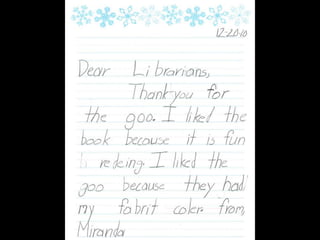 12-20-10
Dear Librarians,
Thank you for
the goo. I liked the
book becouse it is fun
redeing. I liked the
goo because they had
my fabrit coler from,
Miranda